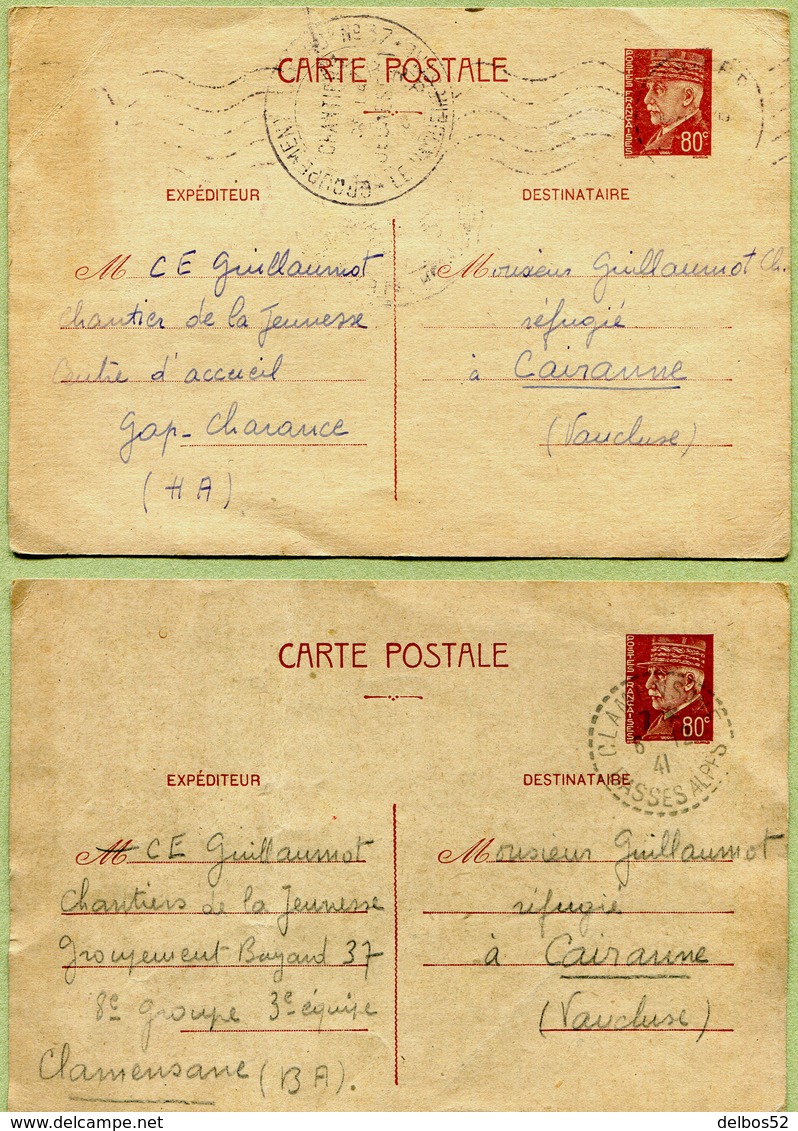 CARTE POSTALE
POSTES FRANÇAISES
80c
GROUPEMENT
N° 37
CHANTIERS
EXPÉDITEUR
DESTINATAIRE
M CE Guillaumot
Chantier de la Jeunesse
Centre d'accueil
Gap-Charance
(HA)
Monsieur Guillaumot Ch.
réfugié
à Cairanne
(Vaucluse)
CARTE POSTALE
POSTES FRANÇAISES
80c
41
BASSES ALPES
EXPÉDITEUR
DESTINATAIRE
M CE Guillaumot
Chantiers de la Jeunesse
Groupement Bayard 37
8e groupe 3e équipe
Clamensane (BA).
Monsieur Guillaumot
réfugié
à Cairanne
(Vaucluse)
delbos52